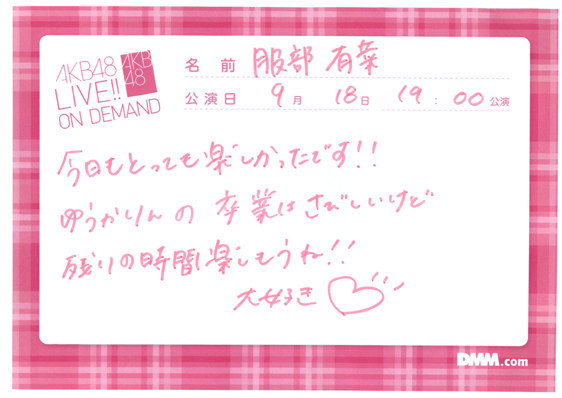 AKB48
LIVE!!
ON DEMAND
AKB
48
名前 服部有菜
公演日 9月 18日 19:00公演
今日もとっても楽しかったです!!
ゆうかりんの卒業はさびしいけど
残りの時間楽しもうね!!
大好き♡
DMM.com